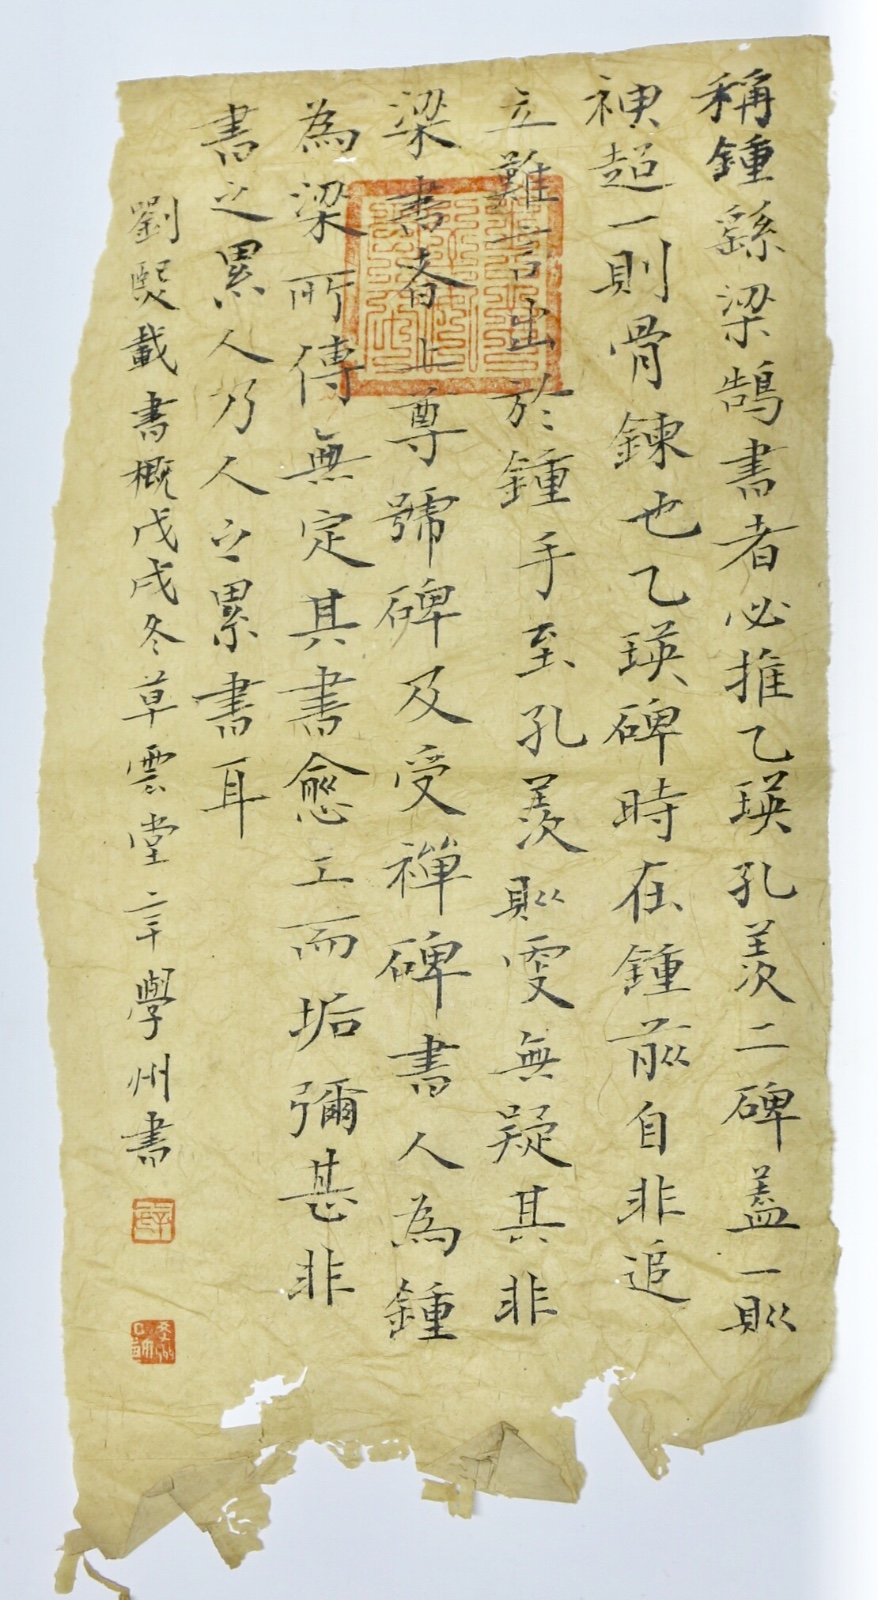 稱鍾繇梁鵠書者必推乙瑛孔羨二碑蓋一則
神超一則骨鍊也乙瑛碑時在鍾前自非追
立難言出於鍾手至孔羨則更無疑其非
梁書者上尊號碑及受禪碑書人為鍾
為梁所傳無定其書愈工而垢彌甚非
書之累人乃人之累書耳
劉熙載書概戊戌冬草雲堂辛學州書